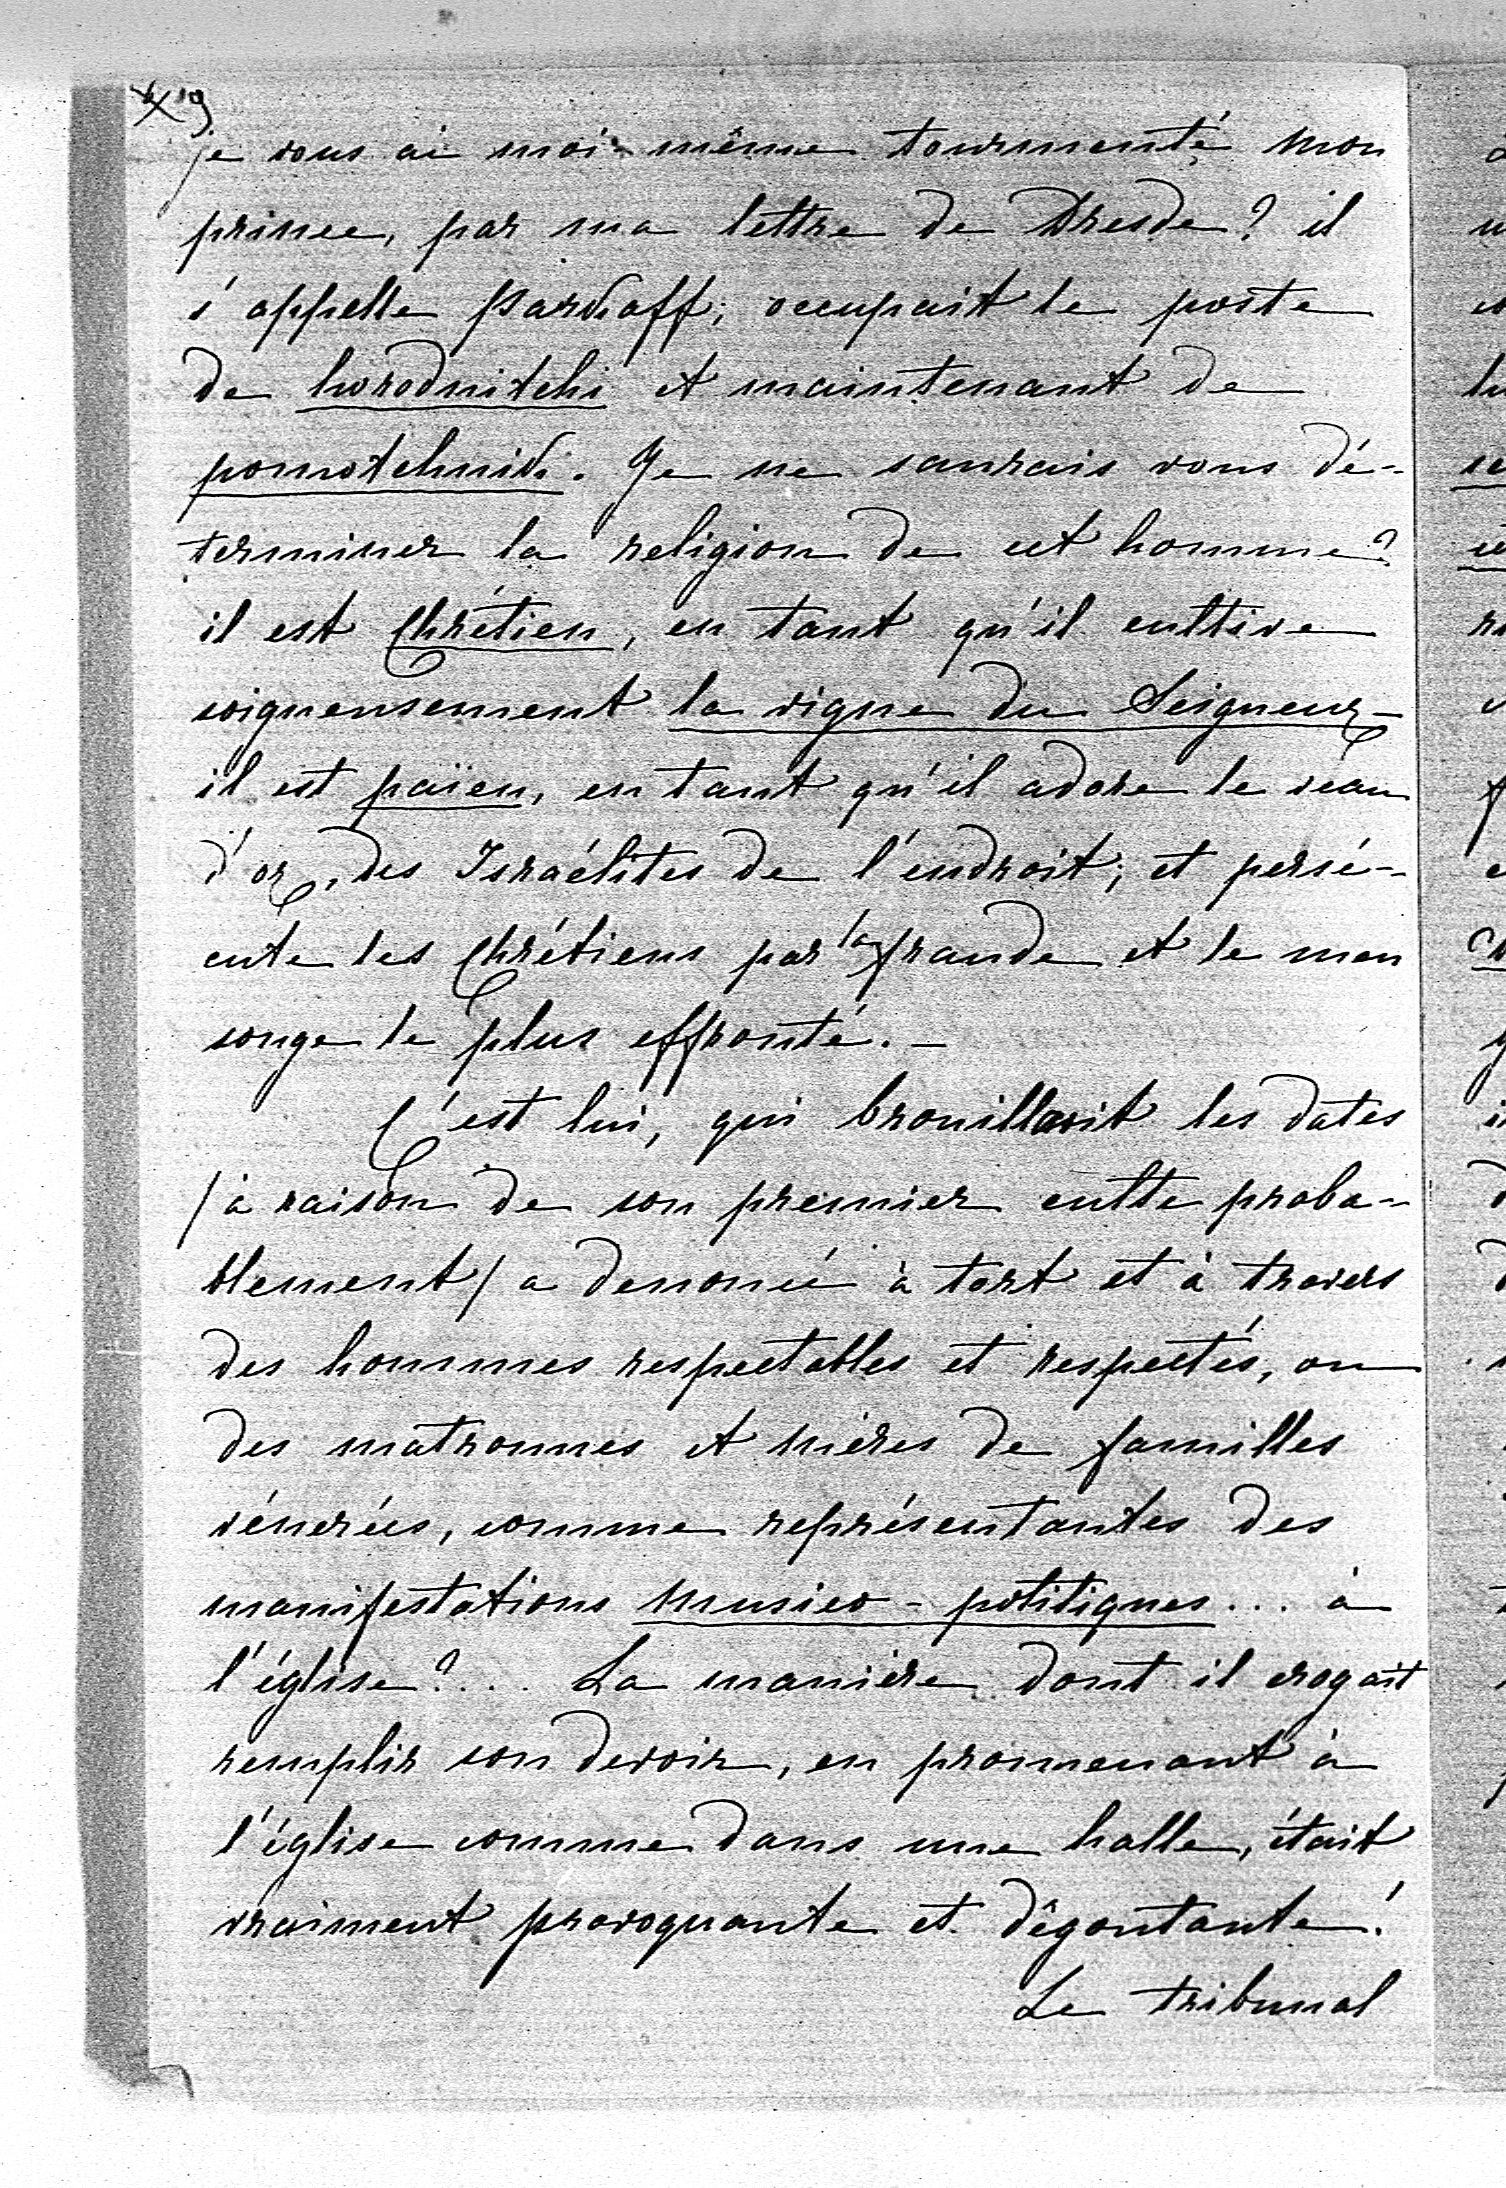 je vous ai moi-même tourmenté mon
prince, par ma lettre de Dresde? il
s'appelle occupait le poste
de horodnitchi et maintenant de
pomotchnik. Je ne saurais vous dé-
terminer la religion de cet homme?
il est Chrétien, en tant qu'il cultive
soigneusement la vigne du Seigneur –
il est païen, en tant qu'il adore le veau
d'or, des Israélites de l'endroit; et persé-
cute les Chrétiens par la fraude et le men
songe le plus effronté. –
C'est lui, qui brouillait les dates
/à raison de son premier culte proba-
blement/ a denoncé à tort et à travers
des hommes respectables et respectés, ou
des matronnes et mères de familles
vénérées, comme représentantes des
manifestations musico-politiques... à
l'église?... La manière dont il croyait
remplir son devoir, en promenant à
l'église comme dans une halle, était
vraiment provoquante et dégoutante!
Le tribunal